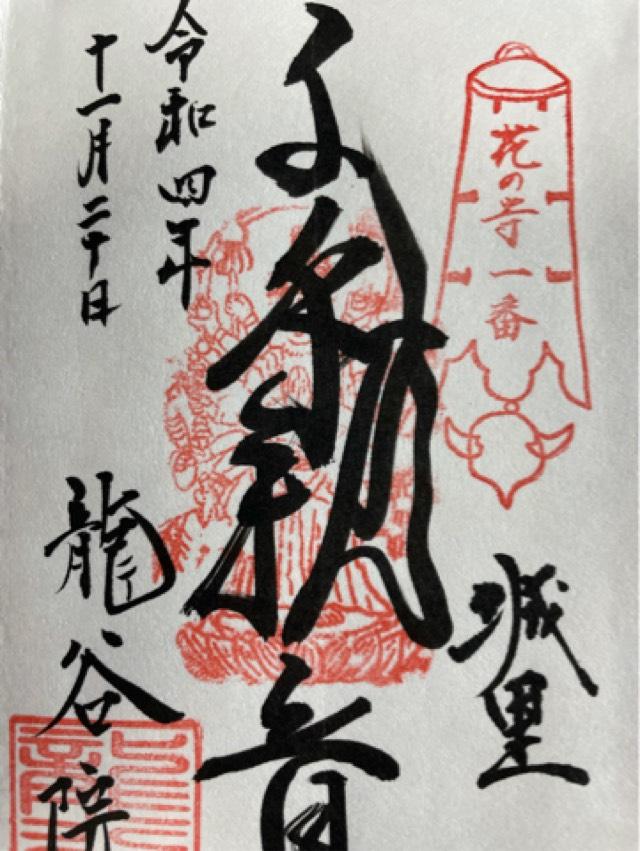 花の寺一番
城里
千手観音
令和四年
十一月二十日
龍谷院